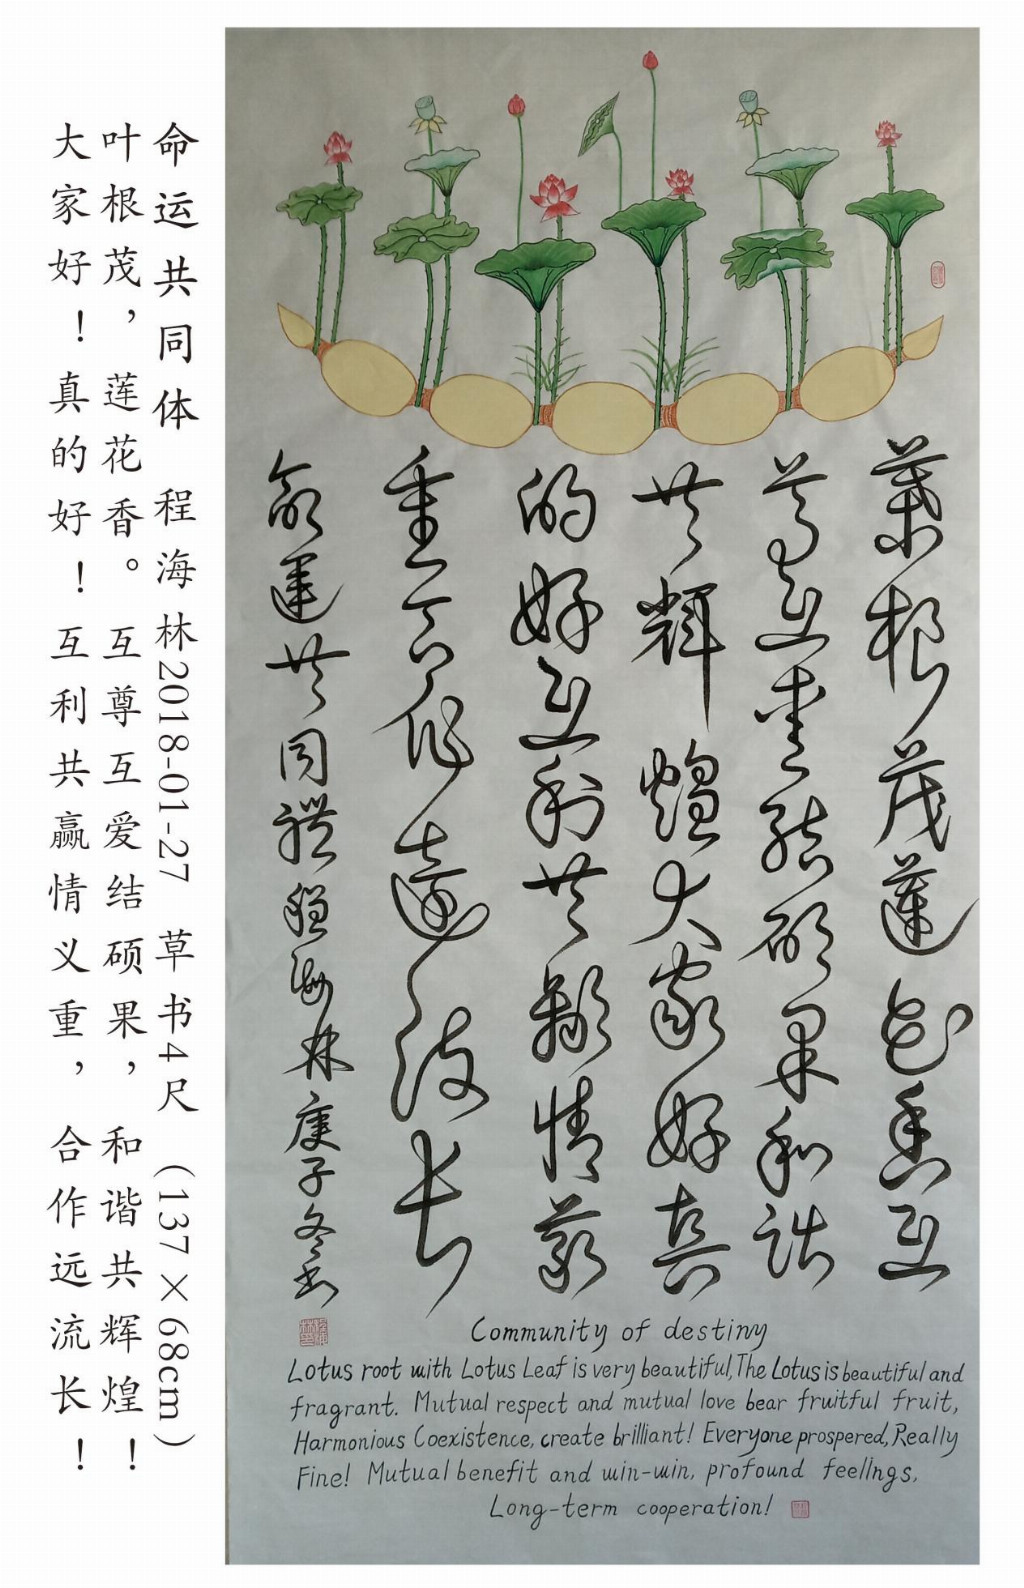 命运共同体 程海林2018-01-27 草书4尺（137×68cm）
叶根茂，莲花香。互尊互爱结硕果，和谐共辉煌！
大家好！真的好！互利共赢情义重，合作远流长！
葉根茂蓮花香互
尊互愛結碩果和諧
共輝煌大家好真
的好互利共贏情義
重合作遠流長
命運共同體程海林庚子冬书
Community of destiny
Lotus root with Lotus Leaf is very beautiful, The Lotus is beautiful and
fragrant. Mutual respect and mutual love bear fruitful fruit,
Harmonious Coexistence, create brilliant! Everyone prospered, Really
Fine! Mutual benefit and win-win, profound feelings,
Long-term cooperation!